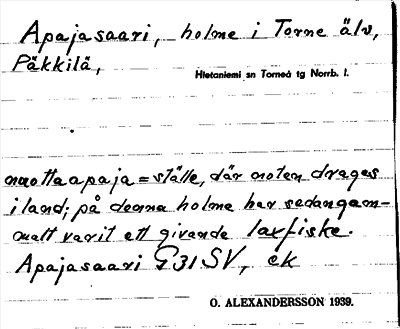 Apajasaari, holme i Torne älv,
Päkkilä,
Hietaniemi sn Torneå tg Norrb. l.
nuottaapaja = ställe, där noten drages
i land; på denna holme har sedan gam-
malt varit ett givande laxfiske.
Apajasaari G31SV, ek
O. ALEXANDERSSON 1939.